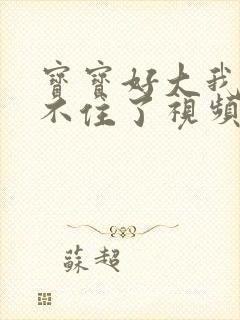 寶寶好大我
不住了視頻
蘇超